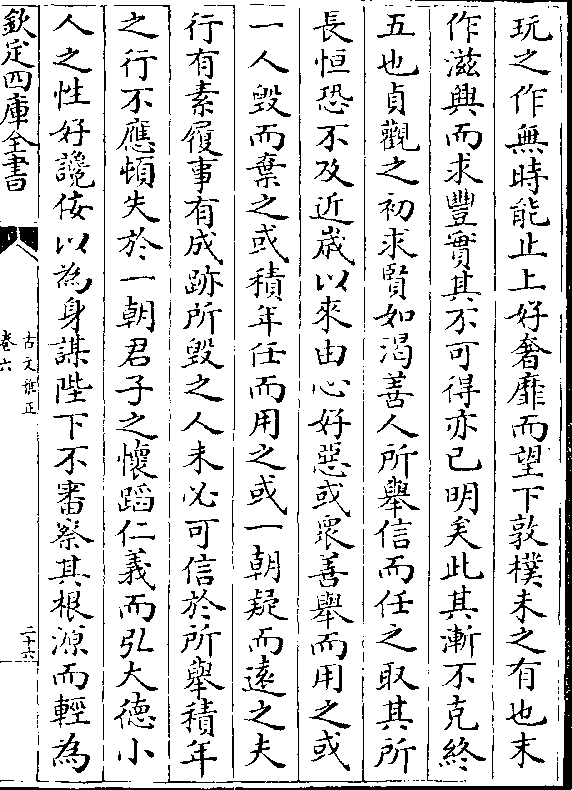 玩之作無時能止上好奢靡而望下敦樸未之有也末
作滋興而求豐實其不可得亦已明矣此其漸不克終
五也貞觀之初求賢如渴善人所舉信而任之取其所
長恒恐不及近嵗以來由心好惡或衆善舉而用之或
一人毁而棄之或積年任而用之或一朝疑而逺之夫
行有素履事有成跡所毁之人未必可信於所舉積年
之行不應頓失於一朝君子之懷蹈仁義而弘大德小
人之性好讒佞以為身謀陛下不審察其根源而輕為
欽定四庫全書
古文雅正
卷六
二十六